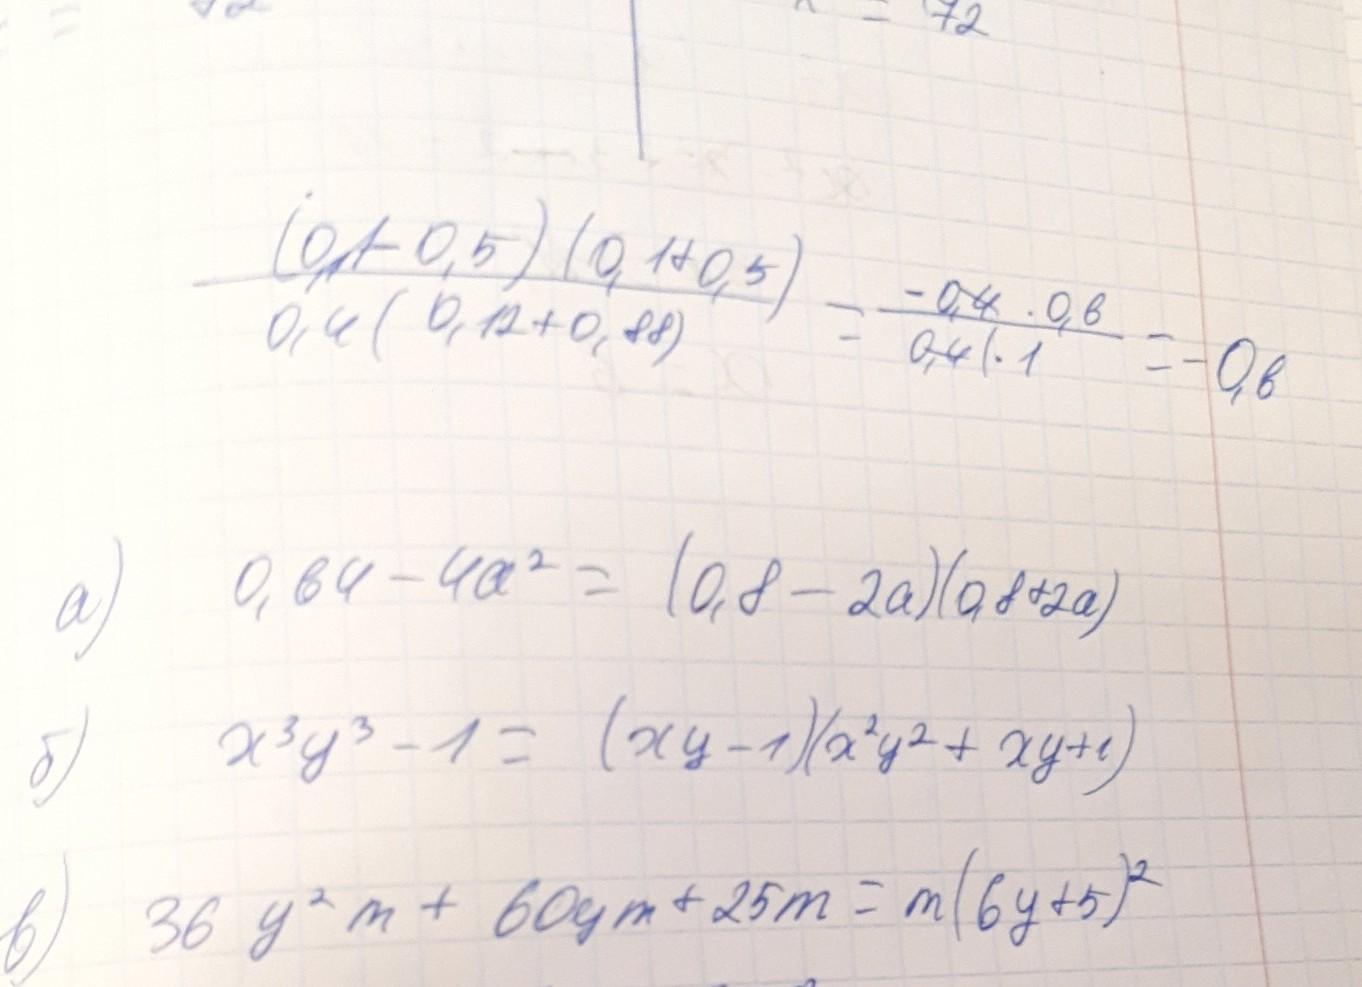 x = 72
(0,1-0,5)(0,1+0,5) / 0,4(0,12+0,88) = -0,4 · 0,6 / 0,4(· 1 = -0,6
а) 0,64 - 4a² = (0,8 - 2a)(0,8+2a)
б) x³y³ - 1 = (xy - 1)(x²y² + xy+1)
в) 36 y² m + 60ym + 25m = m(6y+5)²